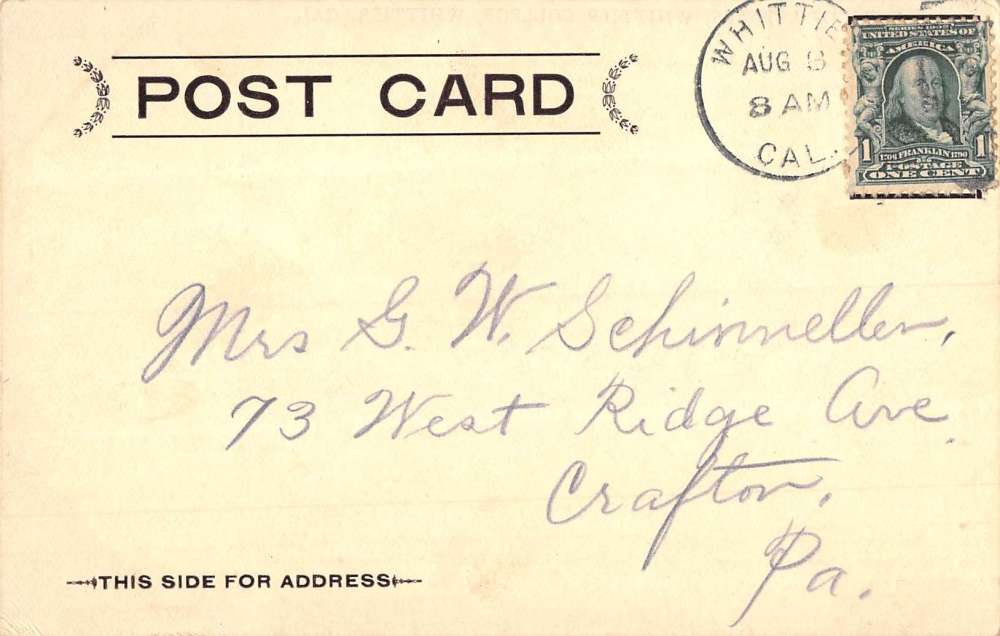 WHITTIE
AUG 8
8 AM
CAL.
SERIES 1902
UNITED STATES OF
AMERICA
1 1
1706 FRANKLIN 1790
POSTAGE
ONE CENT
POST CARD
Mrs G. W. Schimmeller,
73 West Ridge Ave
Crafton,
Pa.
THIS SIDE FOR ADDRESS